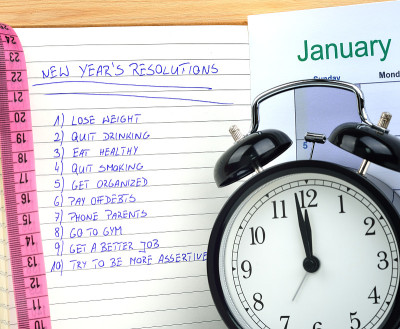 NEW YEAR'S RESOLUTIONS
1) LOSE WEIGHT
2) QUIT DRINKING
3) EAT HEALTHY
4) QUIT SMOKING
5) GET ORGANIZED
6) PAY OF DEBTS
7) PHONE PARENTS
8) GO TO GYM
9) GET A BETTER JOB
10) TRY TO BE MORE ASSERTIVE
January
Sunday Mond
5
24
23
22
21
20
19
18
17
16
15
14
13
12
11
12
1
2
3
4
5
7
8
9
10